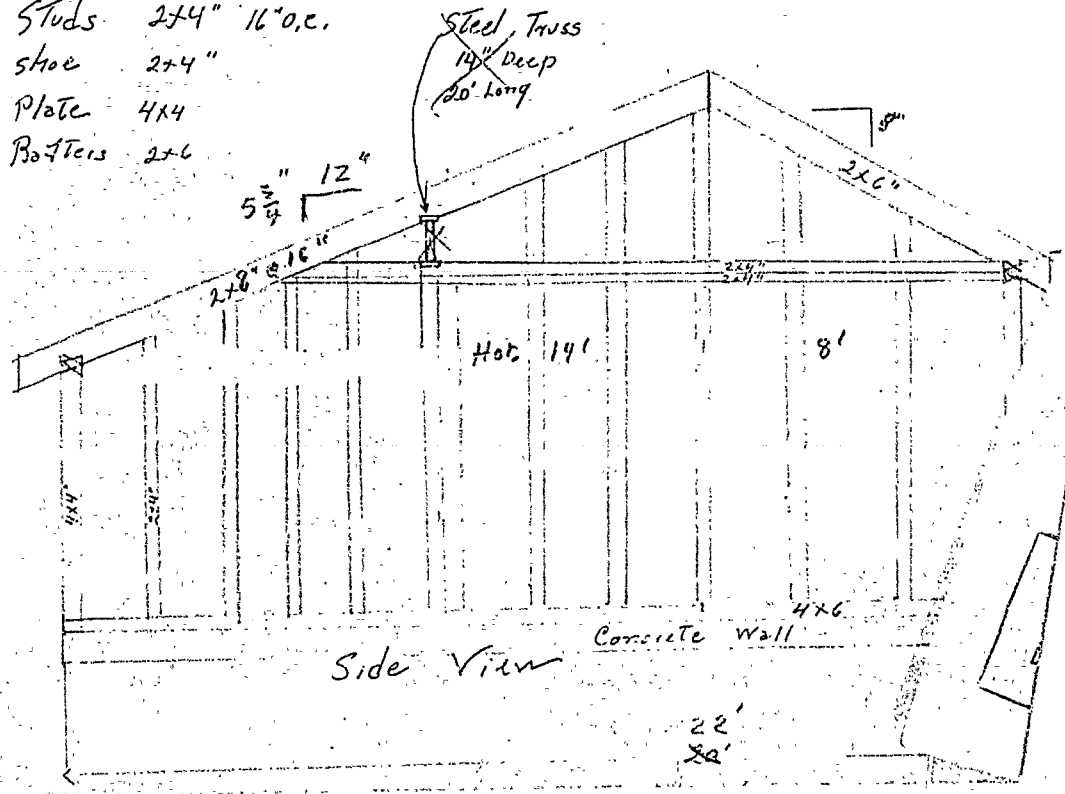 Studs 2x4" 16" O.C.
shoe 2x4"
Plate 4x4
Rafters 2x6
Steel Truss
14" Deep
20' Long
5 3/4" 12"
2x6"
2x8" @ 16"
2x4"
2x4"
Hor. 14'
8'
4x4"
2x4"
4x6
Concrete Wall
Side View
22'
20'